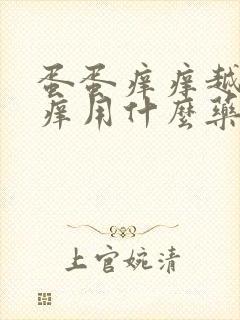 蛋蛋痒痒越
痒用什麼藥
上官婉清